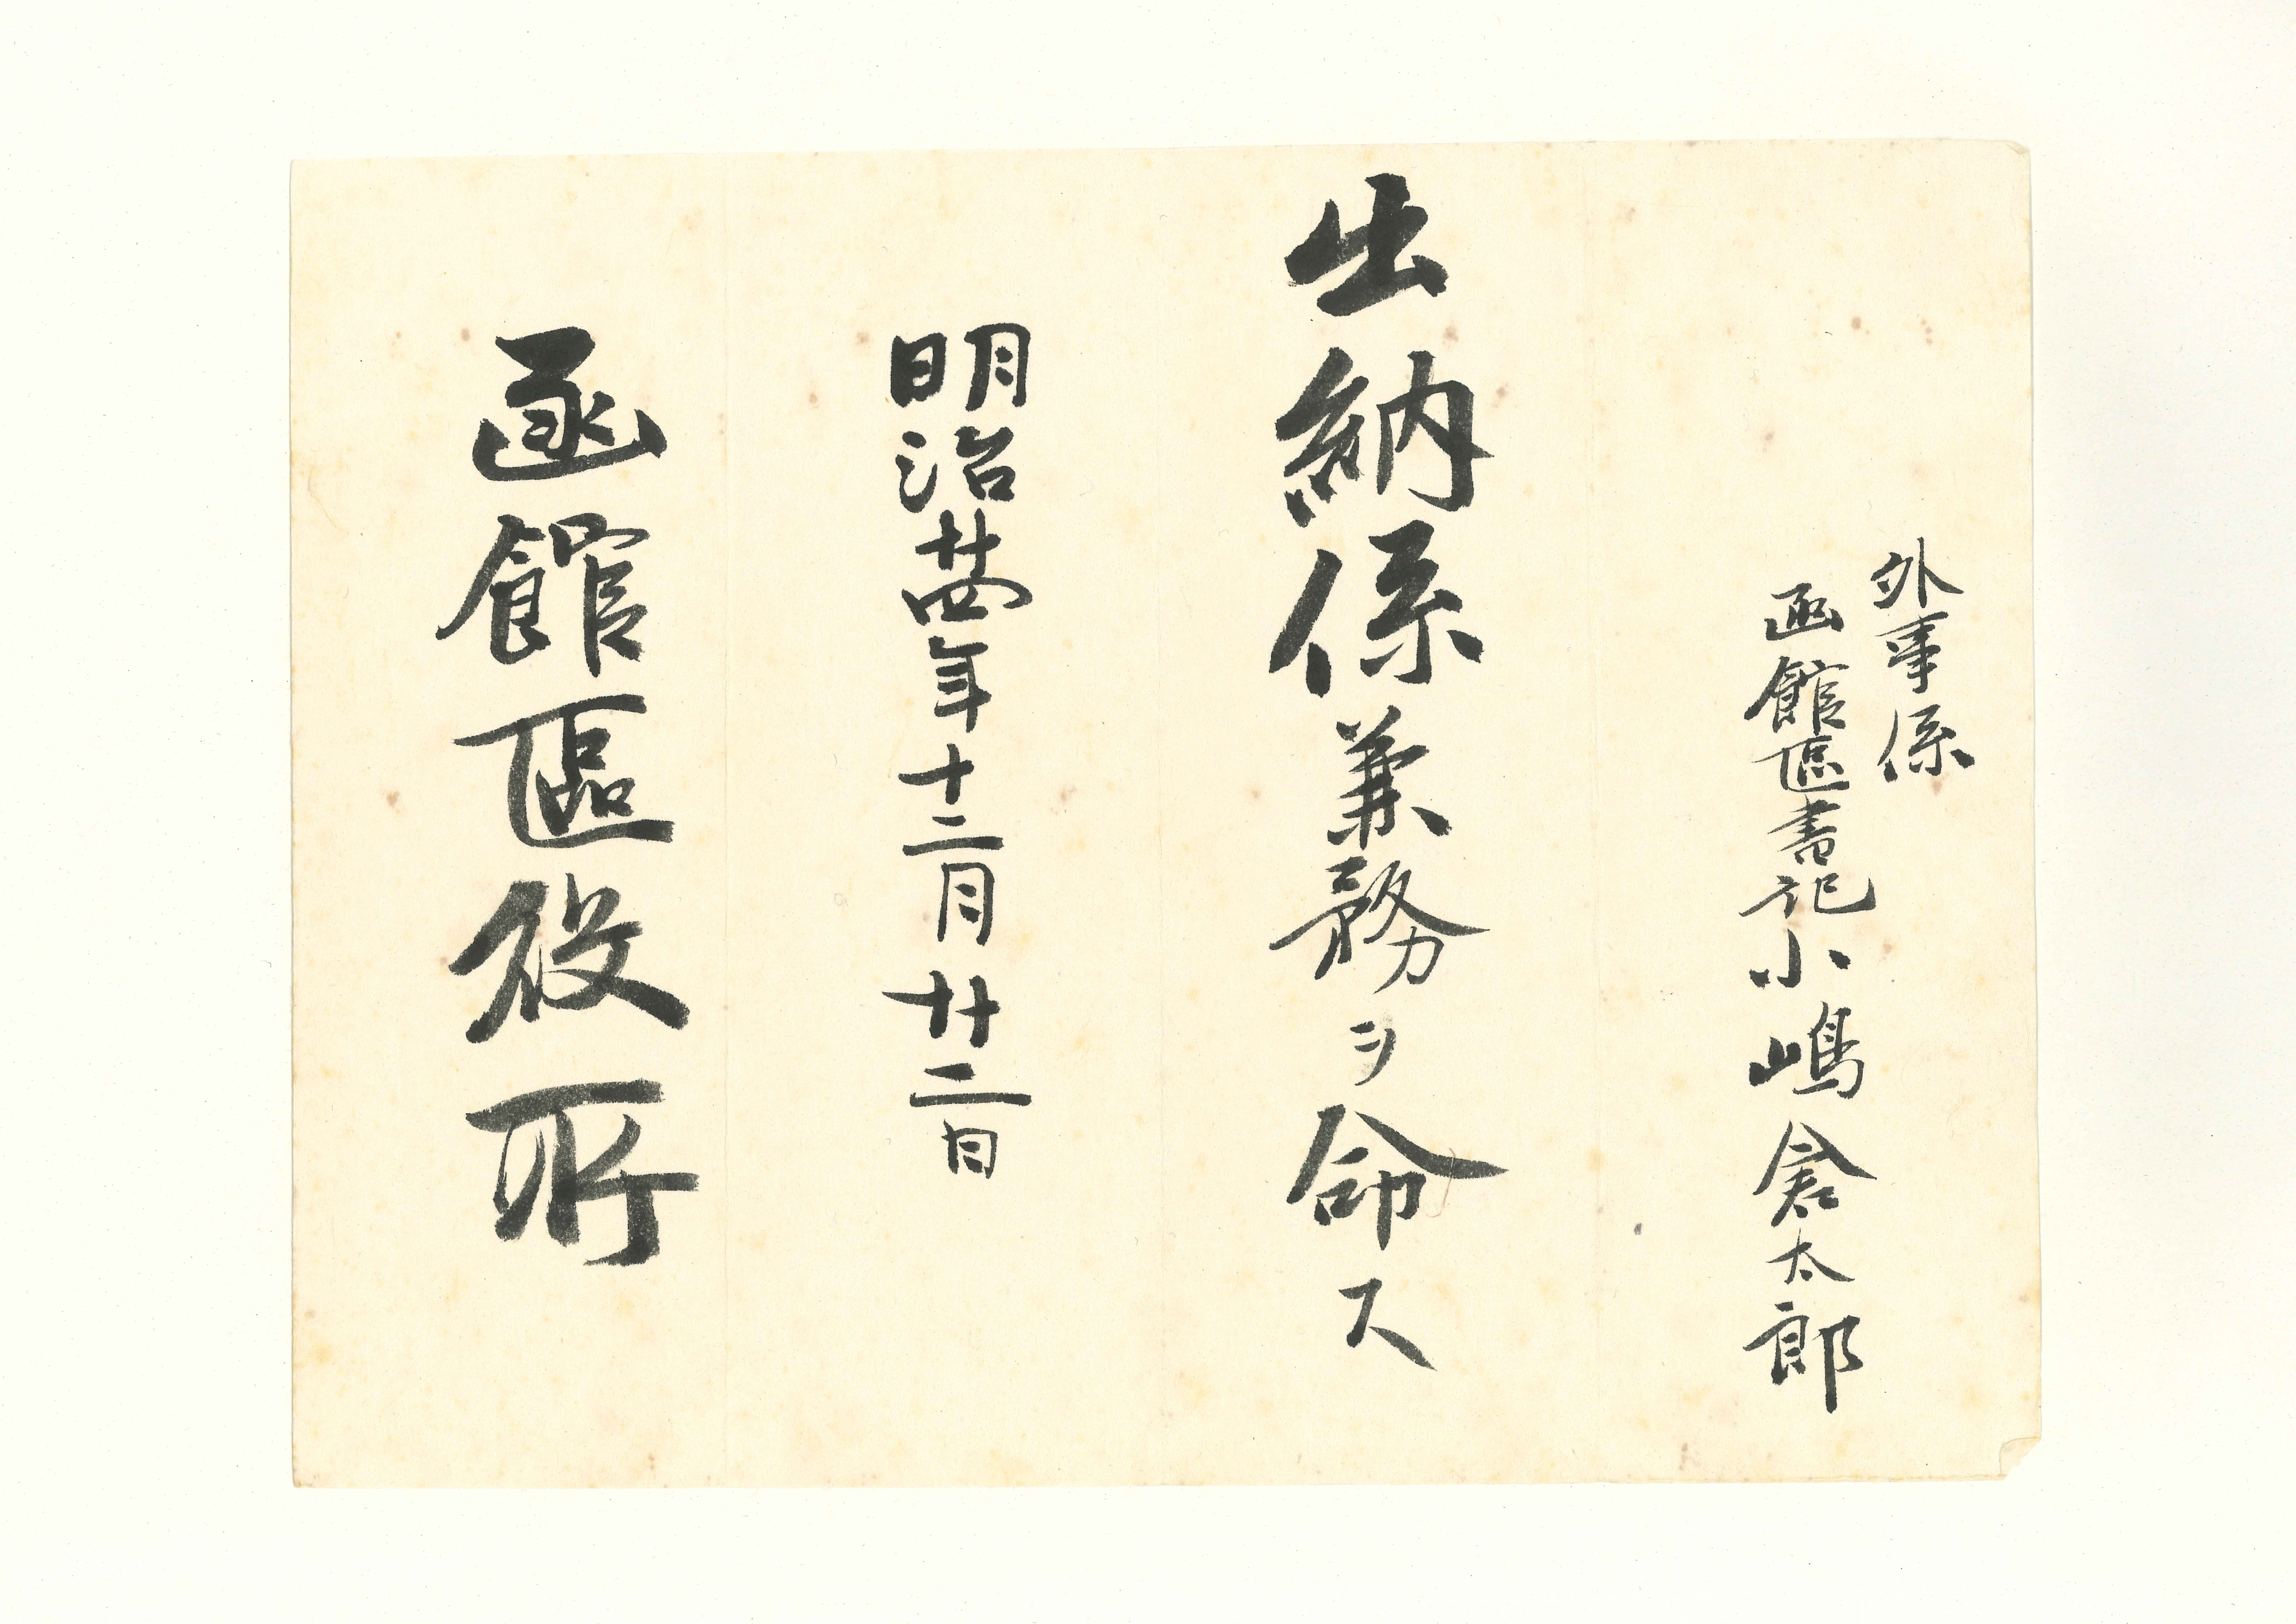 外事係
函館區書記小嶋倉太郎
出納係兼務ヲ命ス
明治廿四年十二月廿二日
函館區役所